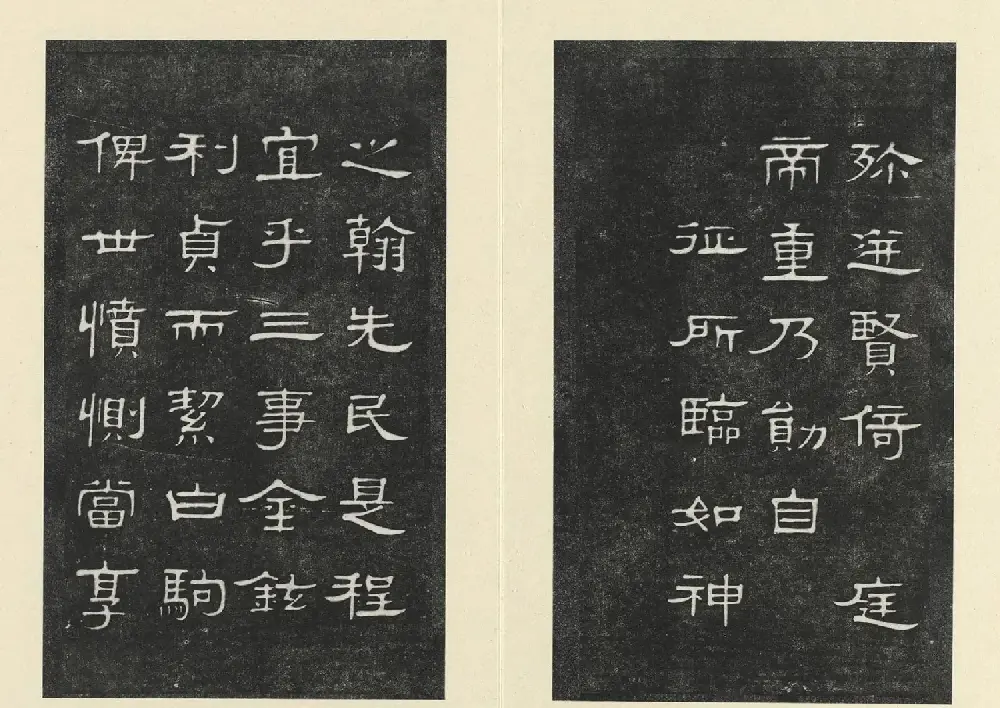 殄迸賢倚 庭
帝重乃勛自
征所臨如神
之翰先民是程
宜乎三事金鉉
利貞而絜白駒
俾世憤惻當享